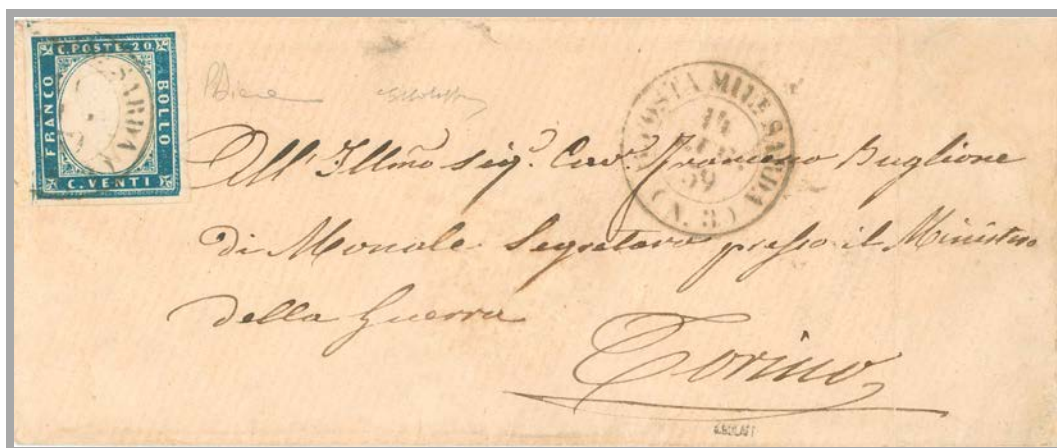 C. POSTE 20.
FRANCO
BOLLO
C. VENTI
SARDA
POSTA MILE SARDA
14
LUG
59
(N. 3)
All' Illmo Sigr. Cavr. Francesco Buglione
di Monale Segretaro presso il Ministero
della Guerra
Torino